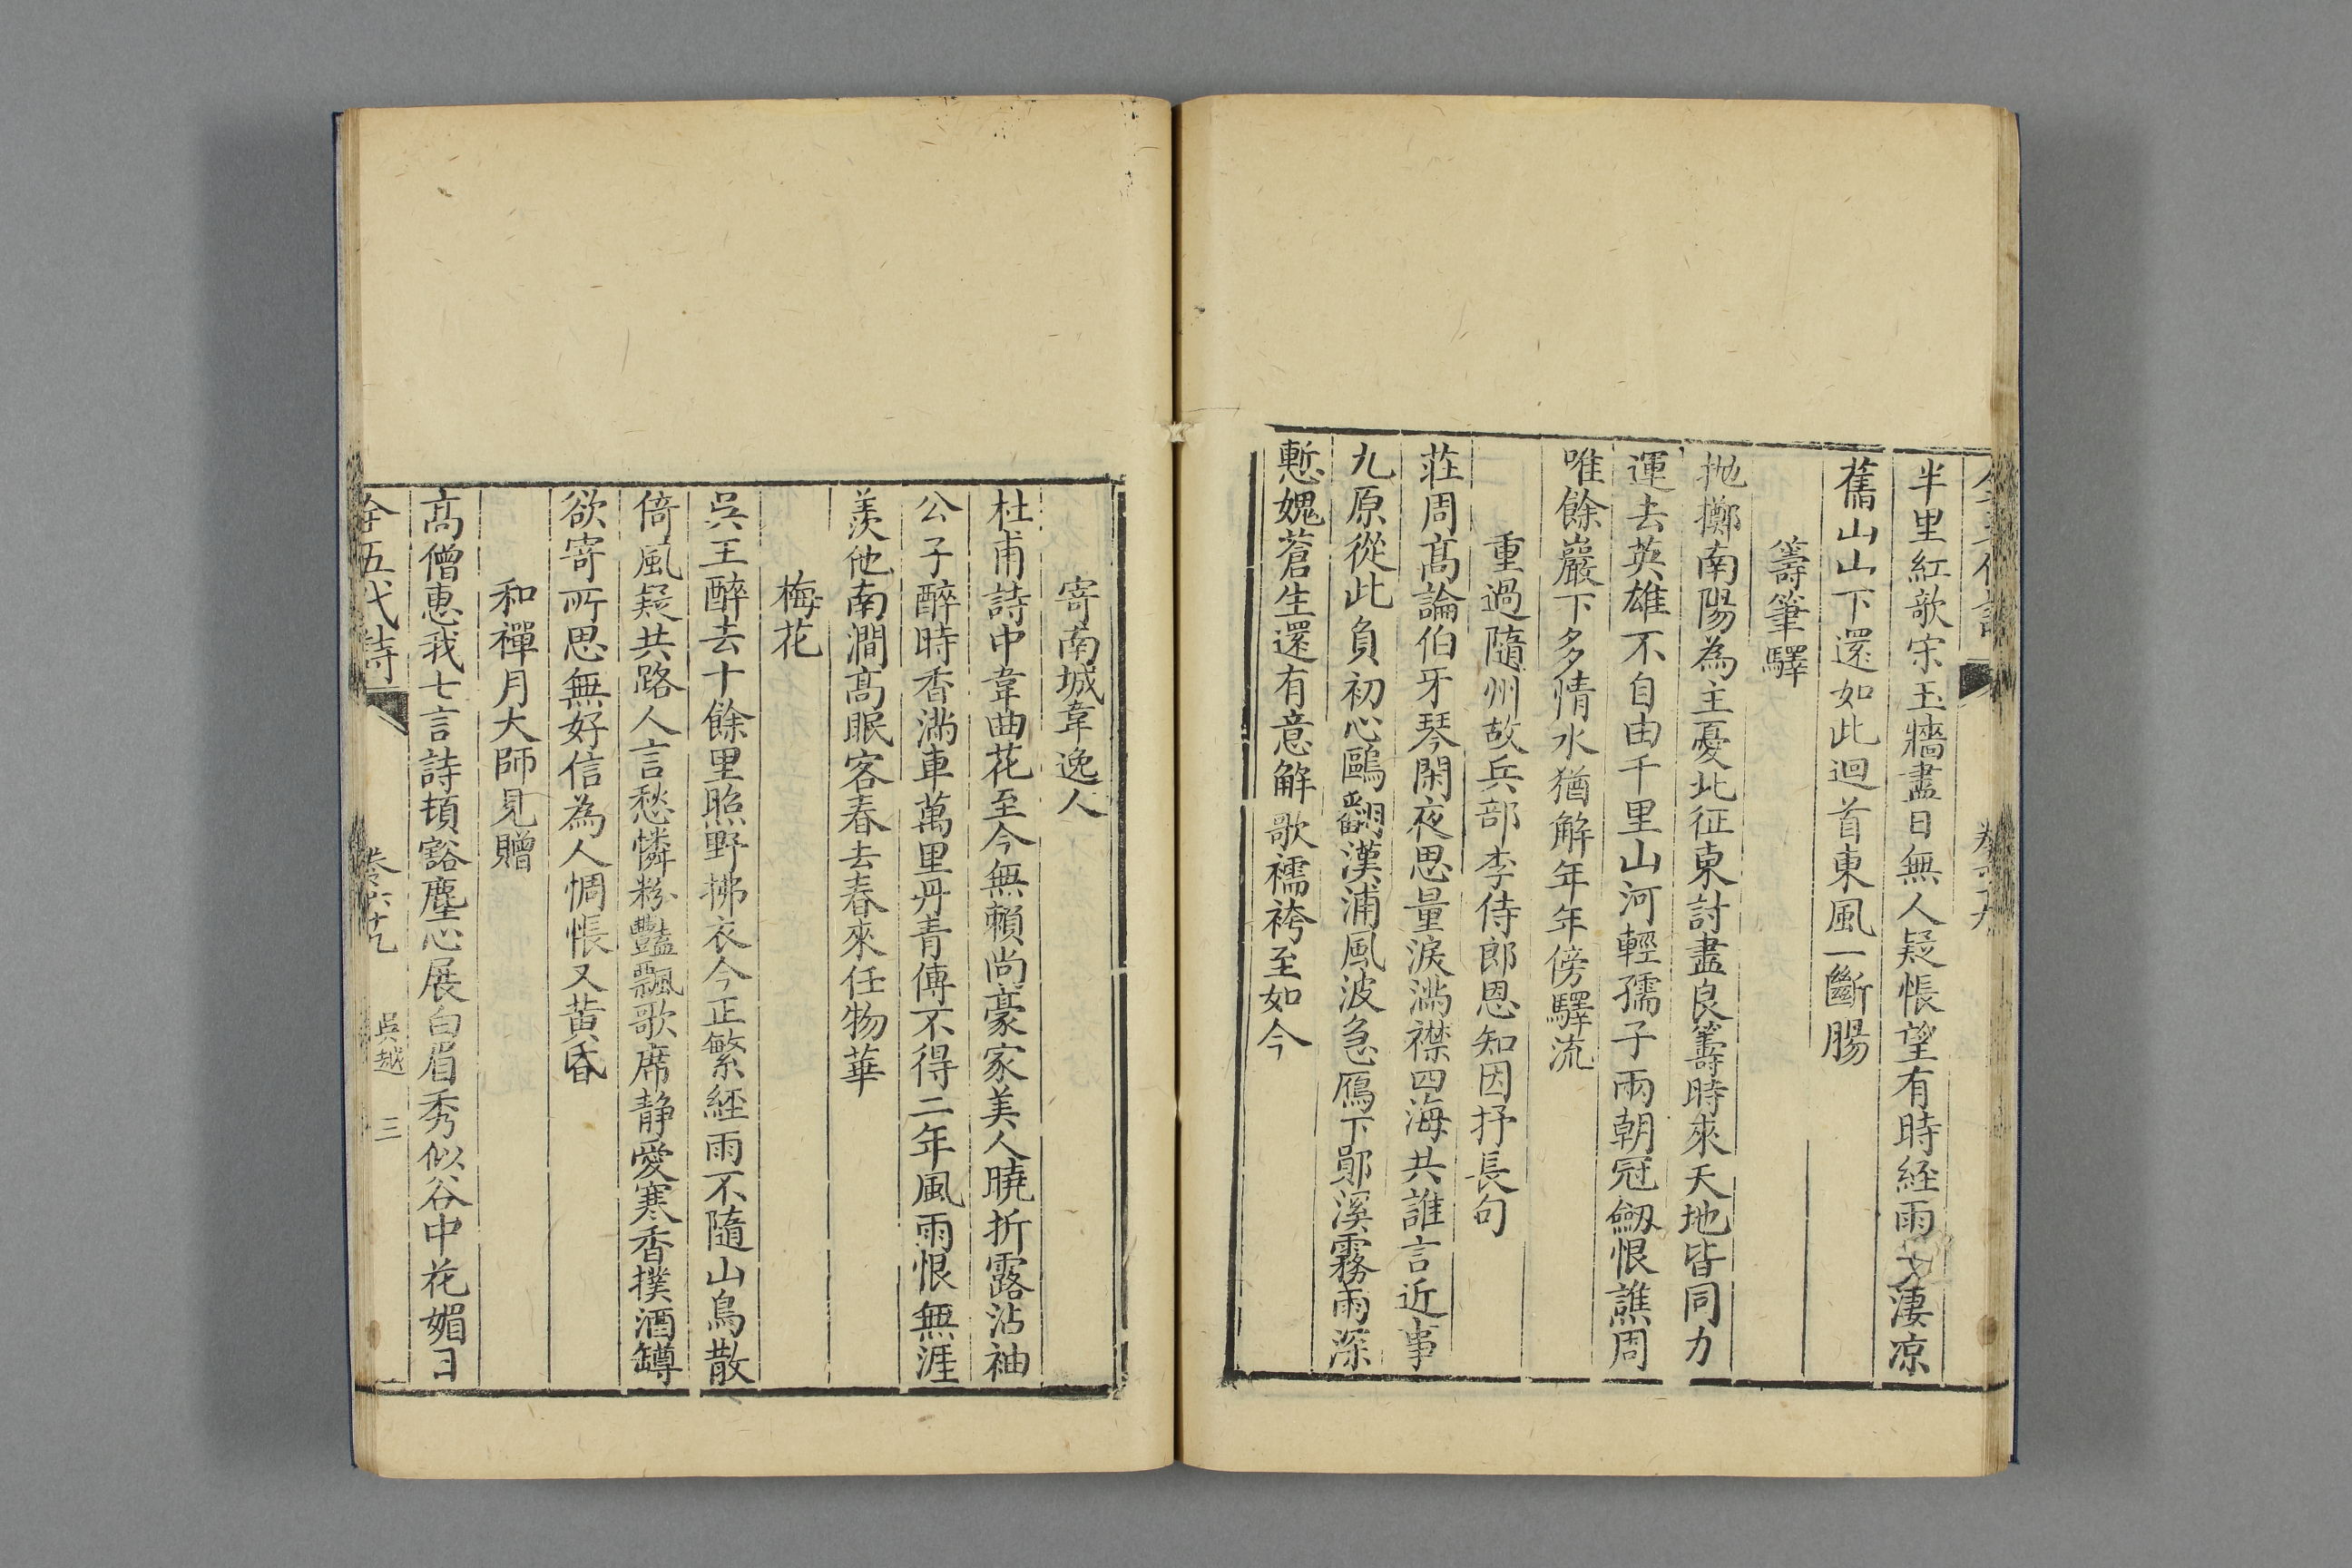 半里紅歌宋玉牆盡日無人疑悵望有時経雨又淒凉
舊山山下還如此迴首東風一斷腸
籌筆驛
抛擲南陽為主憂北征東討盡良籌時來天地皆同力
運去英雄不自由千里山河輕孺子兩朝冠劒恨譙周
唯餘巖下多情水猶解年年傍驛流
重過隨州故兵部李侍郎恩知因抒長句
莊周髙論伯牙琴閑夜思量淚滿襟四海共誰言近事
九原從此負初心鷗翻漢浦風波急鴈下鄖溪霧雨深
慙媿蒼生還有意解歌襦袴至如今
寄南城韋逸人
杜甫詩中韋曲花至今無賴尚豪家美人曉折露沾袖
公子醉時香滿車萬里丹青傳不得二年風雨恨無涯
羨他南澗髙眠客春去春來任物華
梅花
吳王醉去十餘里照野拂衣今正繁経雨不隨山鳥散
倚風疑共路人言愁憐粉豔飄歌席静愛寒香撲酒罇
欲寄所思無好信為人惆悵又黄昏
和禪月大師見贈
髙僧惠我七言詩頓豁塵心展白眉秀似谷中花媚日
全五代詩
吳越
三